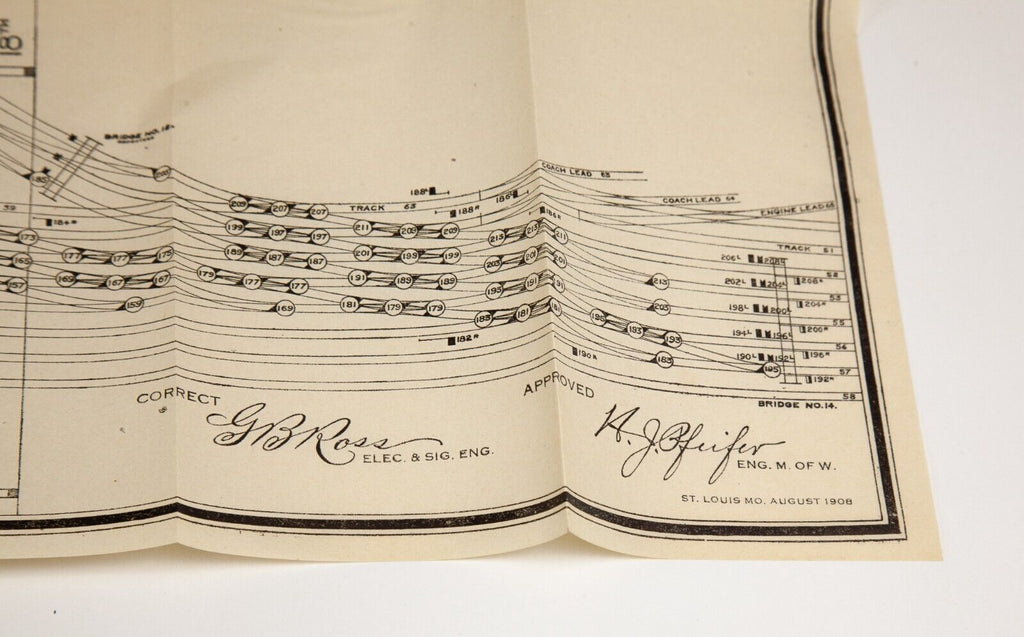 BRIDGE NO. 12.
COACH LEAD 65
188ᴸ
186ᴸ
COACH LEAD 64
209 207 207
TRACK 63
188ᴿ
186ᴿ
ENGINE LEAD 63
59
184ᴿ
173
199 197 197
211 209 209
213 213 211
TRACK 51
177 177 175
189 187 187
201 199 199
203 201 201
206ᴸ 208ᴸ
52
165
179 177 177
191 189 189
193 191 191
213
202ᴸ 204ᴸ
208ᴿ
53
157
169 167 167
159
169
181 179 179
183 181 181
203
198ᴸ 200ᴸ
204ᴿ
55
195 193 193
194ᴸ 196ᴸ
200ᴿ
56
182ᴿ
190ᴿ
183
190ᴸ 192ᴸ
196ᴿ
57
195
192ᴿ
58
BRIDGE NO. 14.
CORRECT
G B Ross
ELEC. & SIG. ENG.
APPROVED
H. J. Pfeifer
ENG. M. OF W.
ST. LOUIS MO. AUGUST 1908